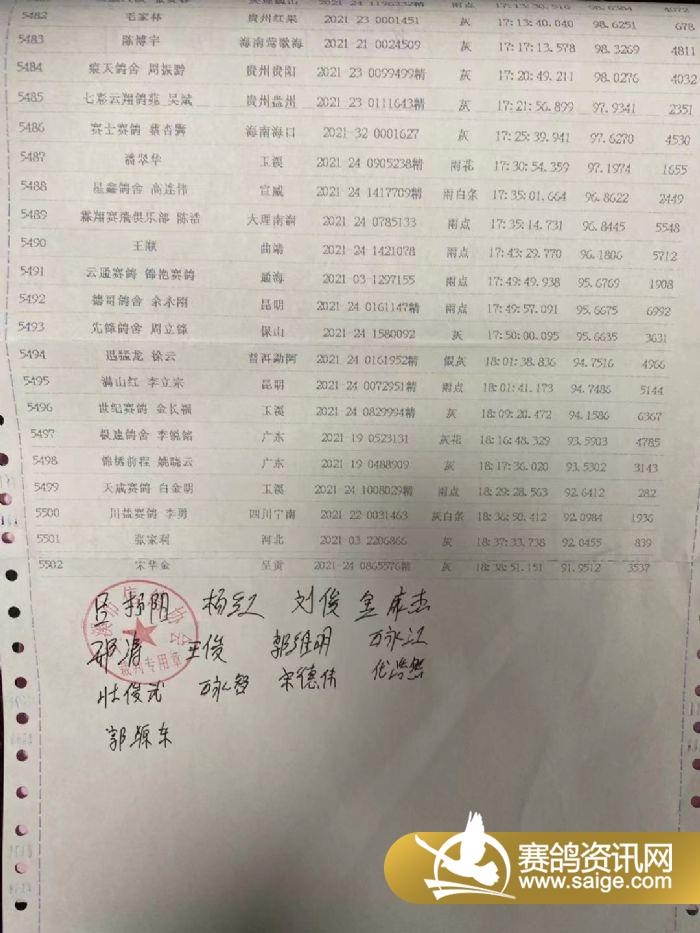 5482 毛家林 贵州红果 2021 23 0001451 灰 17:13:40.040 98.6251 678
5483 陈博宇 海南莺歌海 2021 21 0024509 灰 17:17:13.578 98.3269 4811
5484 鸽舍 周振黔 贵州贵阳 2021 23 0099499精 灰 17:20:49.211 98.0276 4032
5485 七彩云翔鸽苑 吴斌 贵州盘州 2021 23 0111643精 灰 17:21:56.899 97.9341 2351
5486 赛士赛鸽 蔡杏 海南海口 2021-32 0001627 灰 17:25:39.941 97.6270 4530
5487 潘翠华 玉溪 2021 24 0905238精 雨花 17:30:54.359 97.1974 1655
5488 星鑫鸽舍 高连伟 宣威 2021 24 1417709精 雨白条 17:35:01.664 96.8622 2449
5489 霖翔赛飛俱乐部 陈浩 大理南涧 2021 24 0785133 雨点 17:35:14.731 96.8445 5548
5490 王顺 曲靖 2021 24 1421078 雨点 17:43:29.770 96.1806 5712
5491 云通赛鸽 锦艳赛鸽 通海 2021 03 1297155 雨点 17:49:49.938 95.6769 1908
5492 德哥鸽舍 余永刚 昆明 2021 24 0161147精 雨点 17:49:57.091 95.6675 6992
5493 先锋鸽舍 周立锋 保山 2021-24 1580092 灰 17:50:00.095 95.6635 3631
5494 迅猛龙 徐云 普洱勐阿 2021 24 0161952精 假灰 18:01:38.836 94.7516 4966
5495 满山红 李立宗 昆明 2021 24 0072951精 雨点 18:01:41.173 94.7486 5144
5496 世纪赛鸽 金长福 玉溪 2021 24 0829994精 灰 18:09:20.472 94.1586 6367
5497 极速鸽舍 李锐铭 广东 2021 19 0523131 灰花 18:16:48.329 93.5903 4785
5498 锦绣前程 姚晓云 广东 2021 19 0488909 灰 18:17:36.020 93.5302 3143
5499 天成赛鸽 白金明 玉溪 2021-24 1008029精 雨点 18:29:28.563 92.6412 282
5500 川益赛鸽 李勇 四川宁南 2021 22 0031463 灰白条 18:36:50.412 92.0984 1936
5501 张家利 河北 2021 03 2206866 灰 18:37:33.738 92.0455 839
5502 宋华金 呈贡 2021-24 0865576精 灰 18:38:51.151 91.9512 3537
杨红 刘俊
王俊 郭维明 万永江
杜俊武 万永智 宋德伟
郭源东
裁判专用章
赛鸽资讯网
www.saige.com